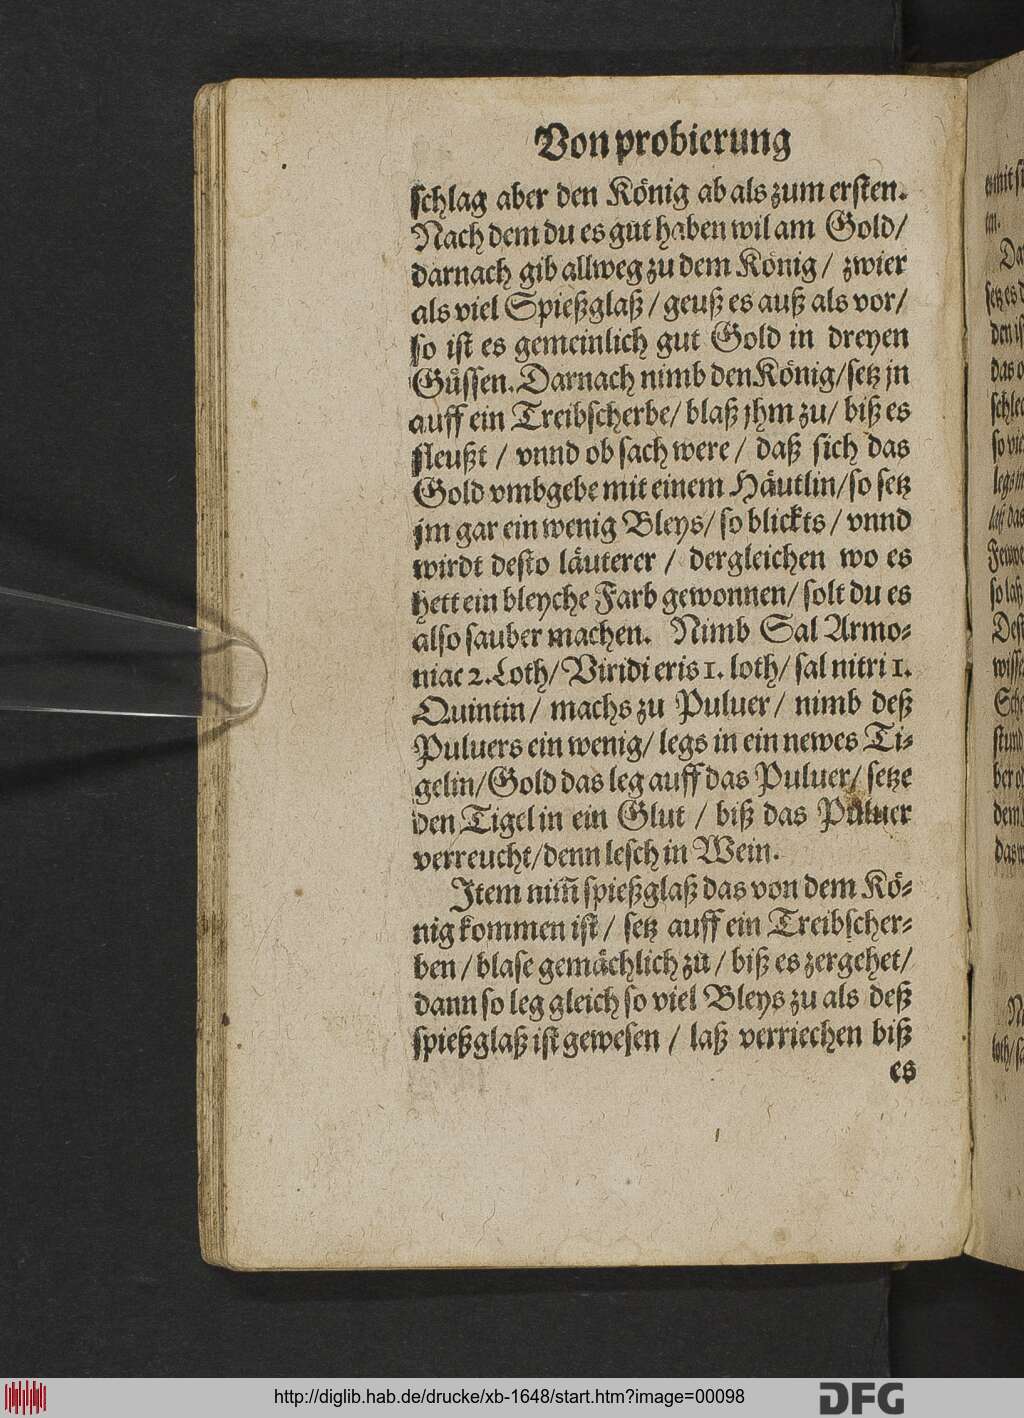 Von probierung
schlag aber den König ab als zum ersten.
Nach dem du es gut haben wil am Gold/
darnach gib allweg zu dem König / zwier
als viel Spießglaß / geuß es auß als vor/
so ist es gemeinlich gut Gold in dreyen
Güssen. Darnach nimb den König/setz jn
auff ein Treibscherbe/ blaß jhm zu/ biß es
fleußt / vnnd ob sach were / daß sich das
Gold vmbgebe mit einem Häutlin/so setz
jm gar ein wenig Bleys/ so blickts / vnnd
wirdt desto läuterer / dergleichen wo es
hett ein bleyche Farb gewonnen/ solt du es
also sauber machen. Nimb Sal Armo-
niac 2. Loth/ Viridi eris 1. loth/ sal nitri 1.
Quintin / machs zu Puluer / nimb deß
Puluers ein wenig/ legs in ein newes Ti-
gelin/Gold das leg auff das Puluer/ setze
den Tigel in ein Glut / biß das Puluer
verreucht/denn lesch in Wein.
Item nim̄ spießglaß das von dem Kö-
nig kommen ist / setz auff ein Treibscher-
ben / blase gemächlich zu / biß es zergehet/
dann so leg gleich so viel Bleys zu als deß
spießglaß ist gewesen / laß verriechen biß
es
http://diglib.hab.de/drucke/xb-1648/start.htm?image=00098
DFG